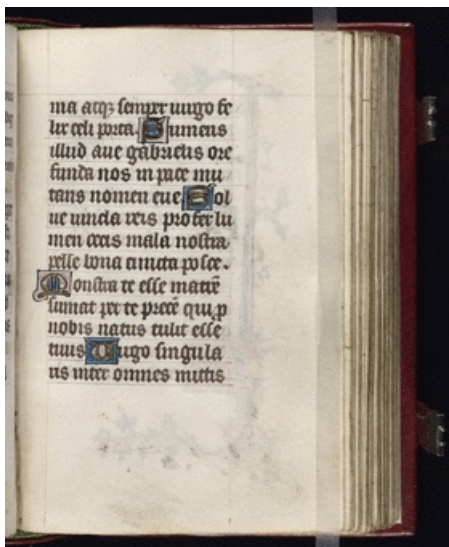 ma atqꝫ semper uirgo fe
lix celi porta. Sumens
illud aue gabrielis ore
funda nos in pace mu
tans nomen eue Sol
ue uincla reis profer lu
men cecis mala nostra
pelle bona cuncta posce.
Monstra te esse matrē
sumat per te precē qui ꝓ
nobis natus tulit esse
tuus Uirgo singula
ris inter omnes mitis